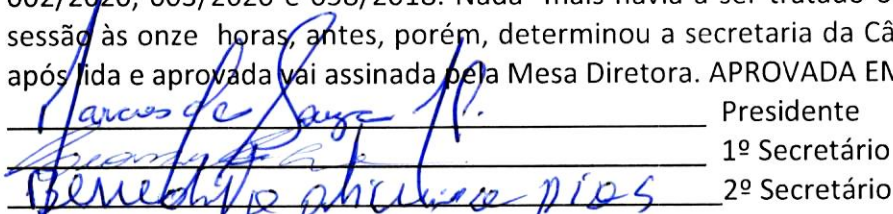 002/2020, 003/2020 e 058/2018. Nada mais havia a ser tratado
sessão às onze horas, antes, porém, determinou a secretaria da Câ
após lida e aprovada vai assinada pela Mesa Diretora. APROVADA EM
Marcos de Souza Presidente
1º Secretário
Dias 2º Secretário